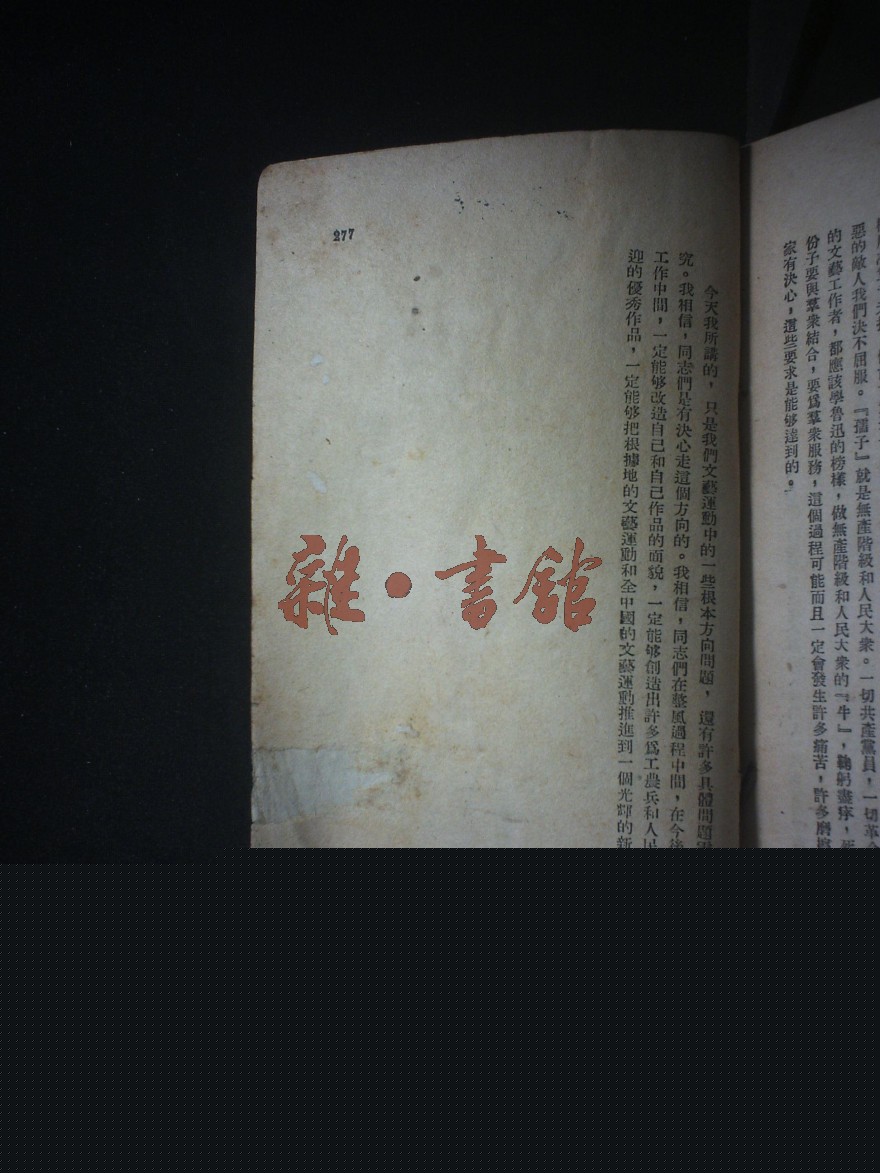 惡的敵人我們決不屈服。『孺子』就是無產階級和人民大衆。一切共產黨員，一切革
的文藝工作者，都應該學魯迅的榜樣，做無產階級和人民大衆的『牛』，鞠躬盡瘁，
份子要與羣衆結合，要爲羣衆服務，這個過程可能而且一定會發生許多痛苦，許多磨擦
家有決心，這些要求是能够達到的。
今天我所講的，只是我們文藝運動中的一些根本方向問題，還有許多具體問題需
究。我相信，同志們是有決心走這個方向的。我相信，同志們在整風過程中間，在今後
工作中間，一定能够改造自己和自己作品的面貌，一定能够創造出許多爲工農兵和人民
迎的優秀作品，一定能够把根據地的文藝運動和全中國的文藝運動推進到一個光輝的新
277
雜·書館